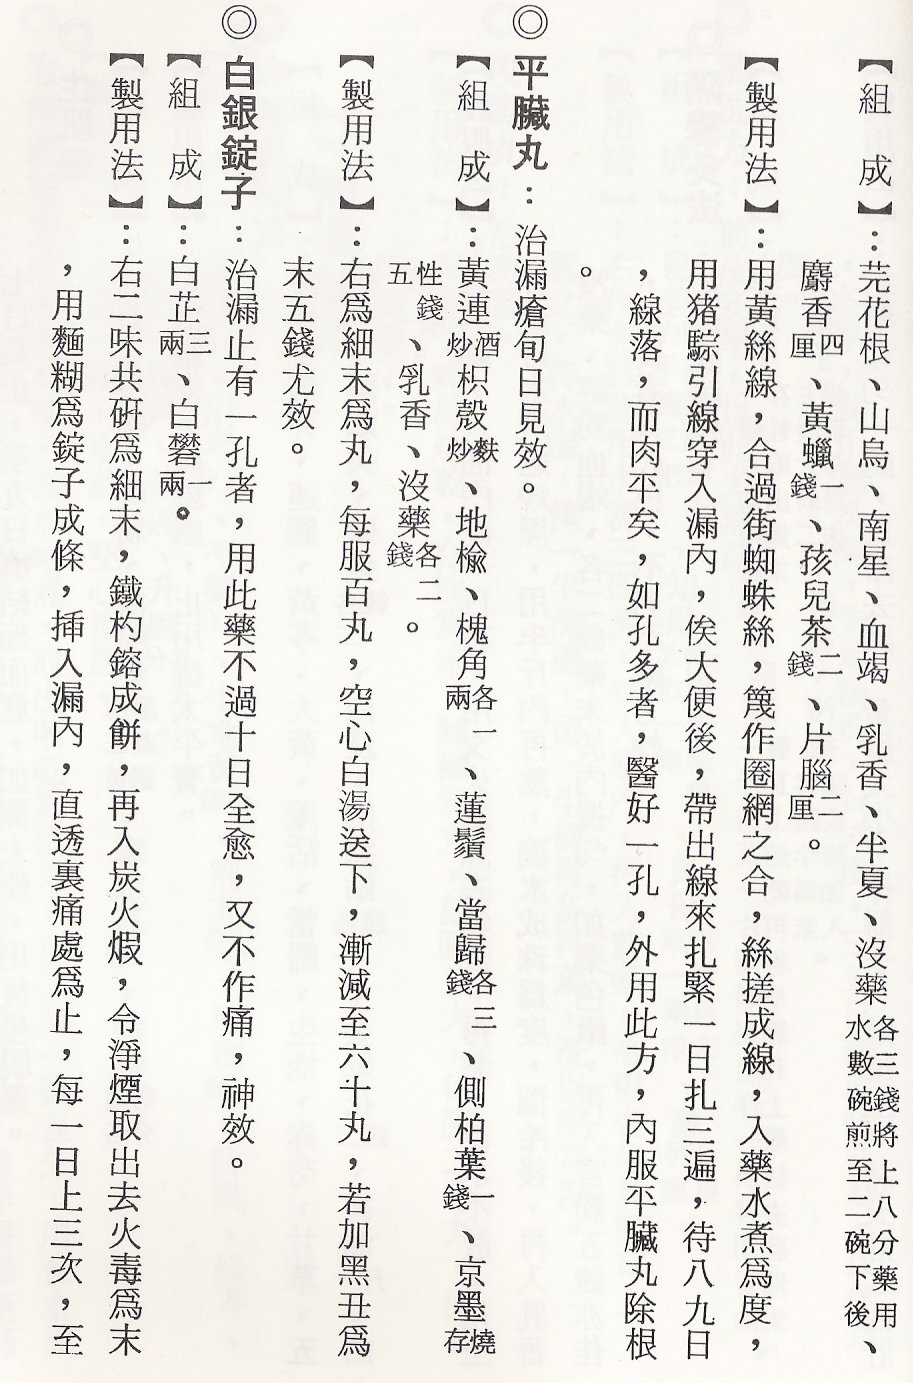 【組　成】：芫花根、山烏、南星、血竭、乳香、半夏、沒藥各三錢將上八分藥用水數碗煎至二碗下後、
麝香四厘、黃蠟一錢、孩兒茶二錢、片腦二厘。
【製用法】：用黃絲線，合過街蜘蛛絲，篾作圈網之合，絲搓成線，入藥水煮爲度，
用猪鬃引線穿入漏內，俟大便後，帶出線來扎緊一日扎三遍，待八九日
，線落，而肉平矣，如孔多者，醫好一孔，外用此方，內服平臟丸除根
。
◎平臟丸：治漏瘡旬日見效。
【組　成】：黃連酒炒枳殼麩炒、地榆、槐角各一兩、蓮鬚、當歸各三錢、側柏葉一錢、京墨燒存
性五錢、乳香、沒藥各二錢。
【製用法】：右爲細末爲丸，每服百丸，空心白湯送下，漸減至六十丸，若加黑丑爲
末五錢尤效。
◎白銀錠子：治漏止有一孔者，用此藥不過十日全愈，又不作痛，神效。
【組　成】：白芷三兩、白礬一兩。
【製用法】：右二味共硏爲細末，鐵杓鎔成餅，再入炭火煆，令淨煙取出去火毒爲末
，用麵糊爲錠子成條，插入漏內，直透裏痛處爲止，每一日上三次，至